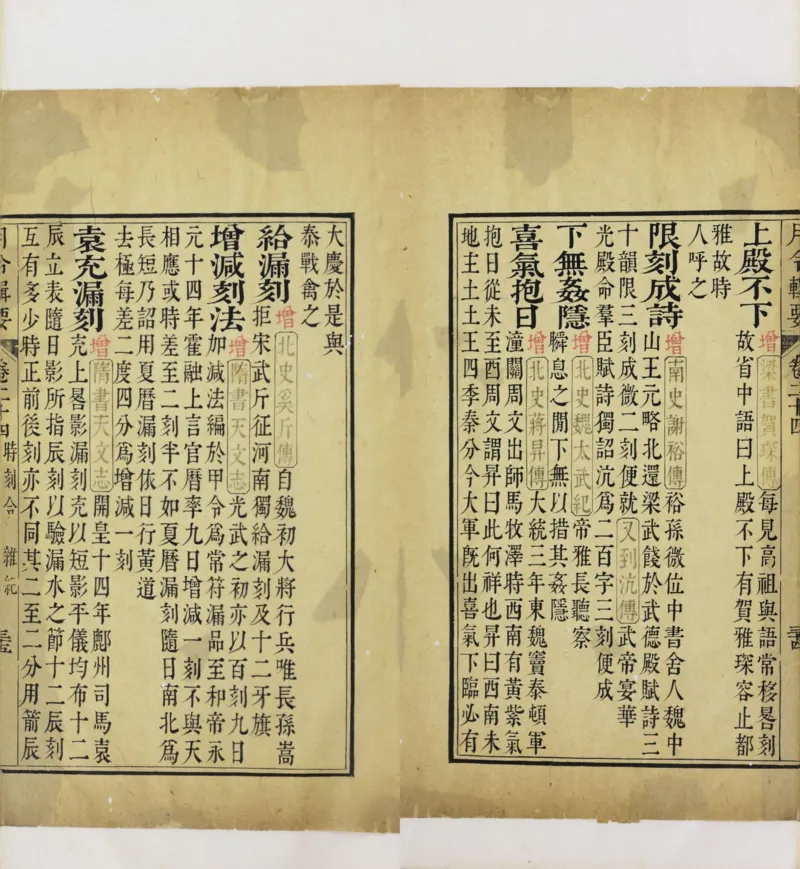 月令輯要 卷二十四
上殿不下
增梁書賀琛傳每見高祖與語常移晷刻
故省中語曰上殿不下有賀雅琛容止都
雅故時
人呼之
限刻成詩
增南史謝裕傳裕孫微位中書舍人魏中
山王元略北還梁武餞於武德殿賦詩三
十韻限三刻成微二刻便就又到沆傳武帝宴華
光殿命羣臣賦詩獨詔沆爲二百字三刻便成
下無姦隱
增北史魏太武紀帝雅長聽察
瞬息之閒下無以措其姦隱
喜氣抱日
增北史蔣昇傳大統三年東魏竇泰頓軍
潼關周文出師馬牧澤時西南有黃紫氣
抱日從未至酉周文謂昇曰此何祥也昇曰西南未
地主土土王四季秦分今大軍旣出喜氣下臨必有
大慶於是與
泰戰禽之
給漏刻
增北史奚斤傳自魏初大將行兵唯長孫嵩
拒宋武斤征河南獨給漏刻及十二牙旗
增減刻法
增隋書天文志光武之初亦以百刻九日
加減法編於甲令爲常符漏品至和帝永
元十四年霍融上言官曆率九日增減一刻不與天
相應或時差至二刻半不如夏曆漏刻隨日南北爲
長短乃詔用夏曆漏刻依日行黃道
去極每差二度四分爲增減一刻
袁充漏刻
增隋書天文志開皇十四年鄜州司馬袁
充上晷影漏刻充以短影平儀均布十二
辰立表隨日影所指辰刻以驗漏水之節十二辰刻
互有多少時正前後刻亦不同其二至二分用箭辰
月令輯要 卷二十四 時刻令 雜紀